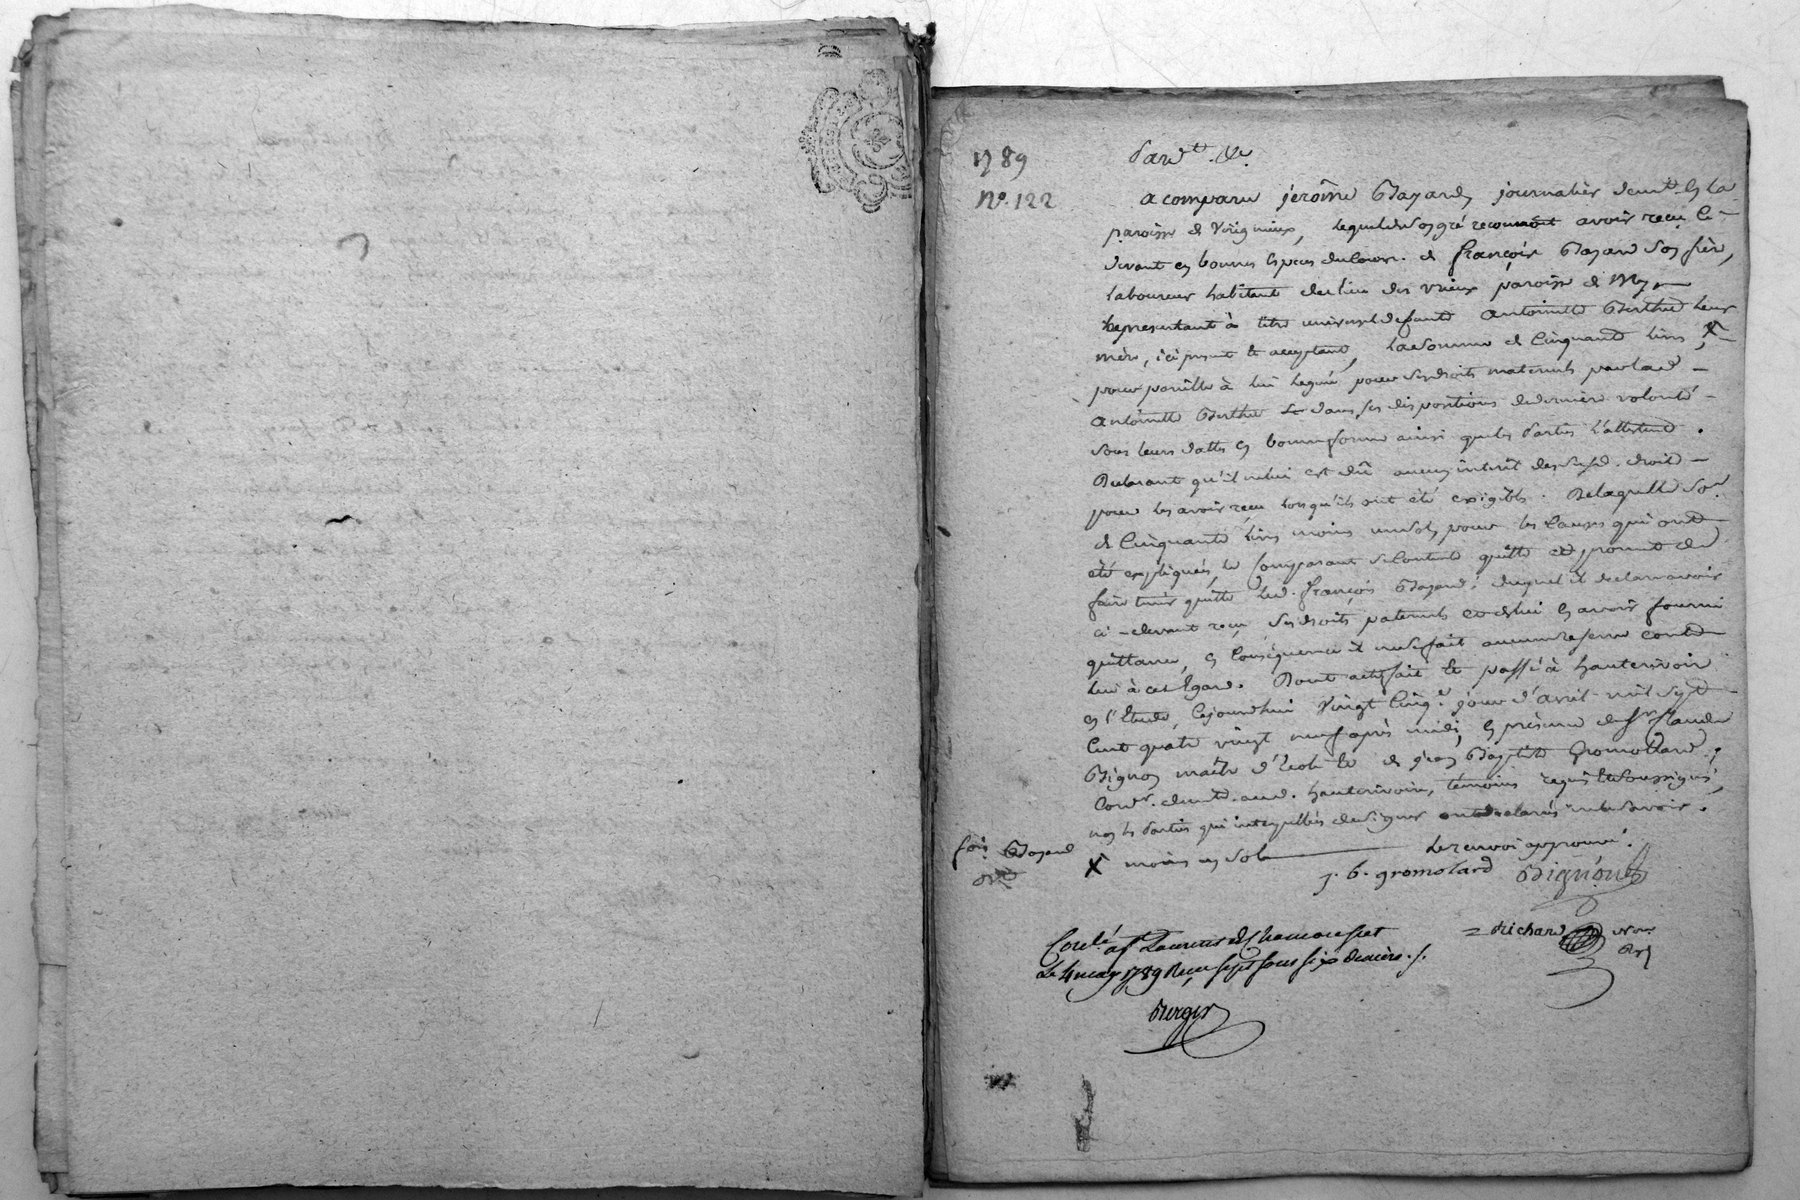 1789
N°. 122
Pardt. &c.
a comparu jerôme Bayard, journalier demt. en la
paroisse de Virignieux, lequel de son gré reconnoit avoir reçu ci-
devant en bonnes espèces de cours. de françois Bayard son frère,
laboureur habitant du lieu des vrieux paroisse de Mys
représentant à titre universel defunte antoinette Berthet leur
mère, ici présent et acceptant, la somme de Cinquante livres X
pour pareille à lui leguée pour ses droits maternels par lad.
antoinette Berthet dans ses dispositions de dernière volonté
sous leurs dattes en bonne forme ainsi que les parties l'attestent.
Declarant qu'il ne lui est dû aucun intérêt des susd. droits
pour les avoir reçu lorsqu'ils ont été exigibles. De laquelle so.e
de Cinquante livres moins un sol, pour les causes qui ont
été expliquées, le Comparant se contente quitte et promet de
faire tenir quitte led. françois Bayard; duquel il declare avoir
ci-devant reçu ses droits paternels et de lui en avoir fourni
quittance, en Conséquence il ne se fait aucune reserve contre
lui à cet égard. Dont acte fait et passé à hauterivoire
en l'Etude, Cejourd'hui Vingt Cinq.e jour d'avril mil sept
Cent quatre vingt neuf après midi, en présence de sr. Claude
Bignon maître d'école et de jean Baptiste Gromollard,
Cord.r demt. aud. hauterivoire, témoins requis et soussignés,
non les parties qui interpellées de signer ont declarés ne le savoir.
fois Bayard
X moins un sol le renvoi approuvé.
j. b. gromolard Bignon
= Richard not.re
Ryl
Con.lé à St Laurent de Chamousset
Le 4 may 1789 Reçu sept sous six deniers ./.
Berger